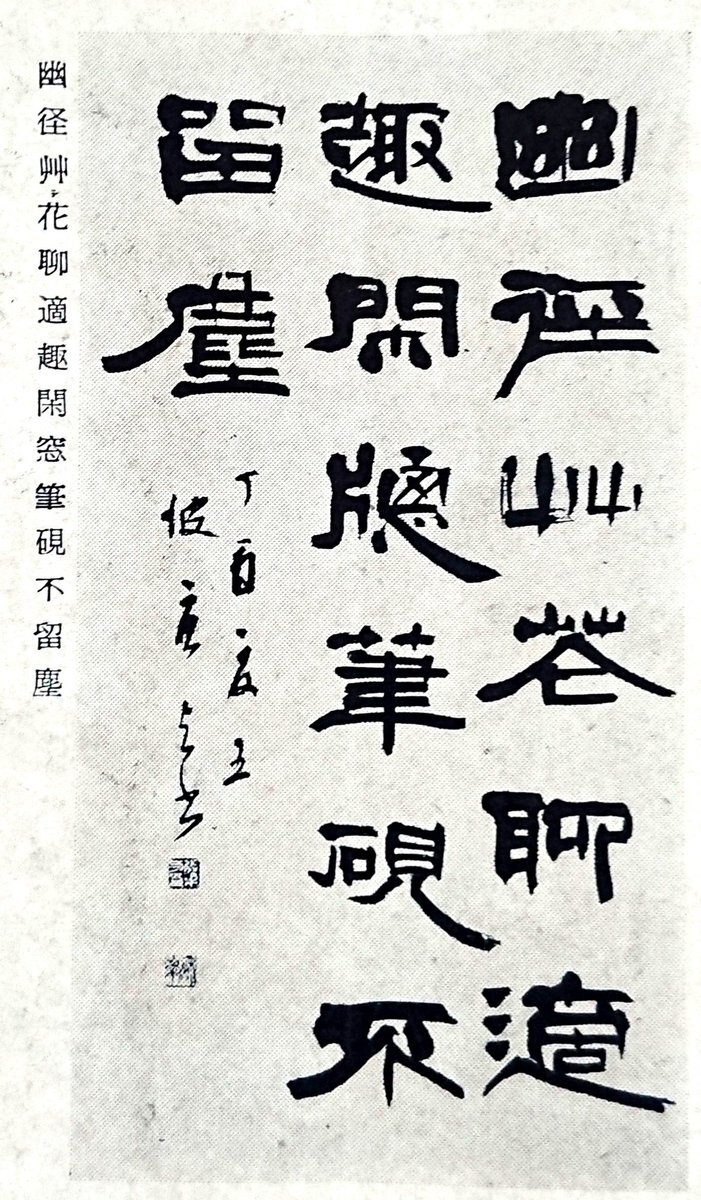 幽徑艸花聊適
趣閑牕筆硯不
留塵
丁酉夏王
幽径艸花聊適趣閑窓筆硯不留塵